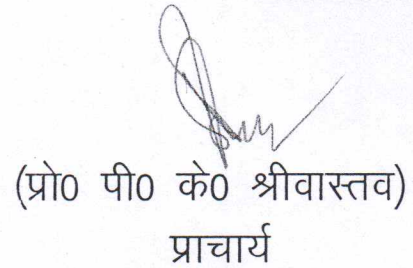 (प्रो0 पी0 के0 श्रीवास्तव)
प्राचार्य